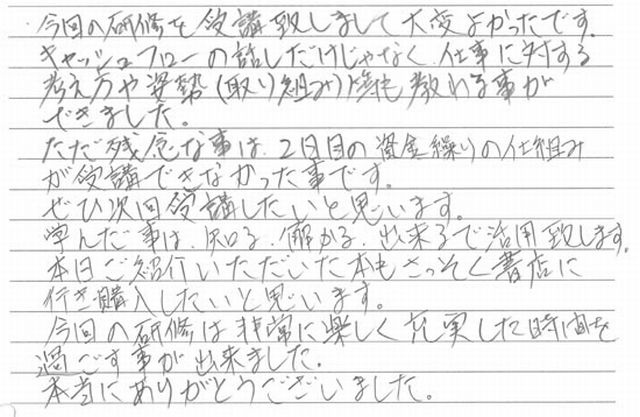 今回の研修を受講致しまして大変よかったです。
キャッシュフローの話しだけじゃなく、仕事に対する
考え方や姿勢(取り組み)等も教わる事が
できました。
ただ残念な事は、2日目の資金繰りの仕組み
が受講できなかった事です。
ぜひ次回受講したいと思います。
学んだ事は、知る、解かる、出来るで活用致します。
本日ご紹介いただいた本もさっそく書店に
行き購入したいと思います。
今回の研修は非常に楽しく充実した時間を
過ごす事が出来ました。
本当にありがとうございました。